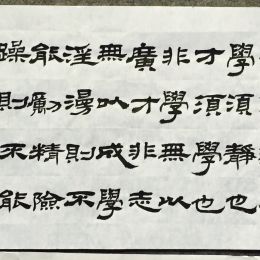 學須靜也
才須學也
非學無以
廣才非志
無以成學
淫漫則不
能勵精險
躁則不能